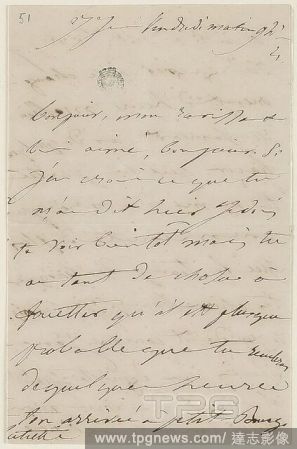 51
Vendredi matin 9h
Bonjour, mon ravissant
bien aimé, bonjour. Si
j'en crois ce que tu
m'as dit hier je dois
te voir bientôt mais tu
as tant de choses à
qu'il est plus que
probable que tu
de quelques heures
ton arrivée à petit
TPG
www.tpgnews.com / 達志影像